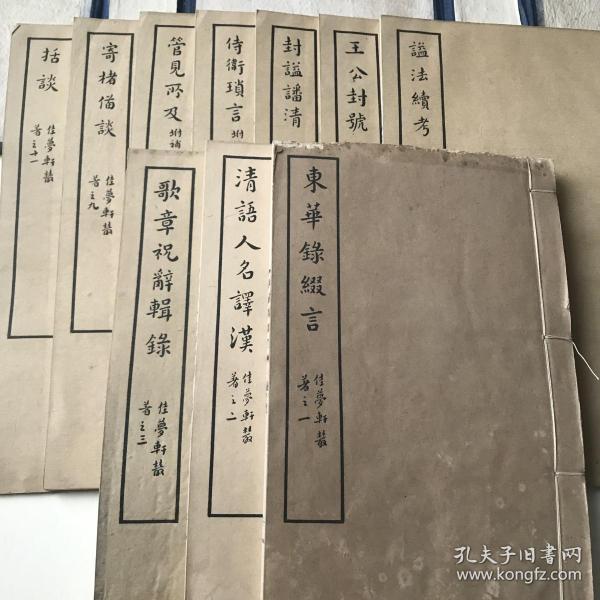 謚法續考
王公封號
封謚譒清
侍衛瑣言 坿
管見所及 坿補
寄楮備談
佳夢軒叢
著之九
括談
佳夢軒叢
著之十一
東華錄綴言
佳夢軒叢
著之一
清語人名譯漢
佳夢軒叢
著之二
歌章祝辭輯錄
佳夢軒叢
著之三
孔夫子旧书网
www.kongfz.com